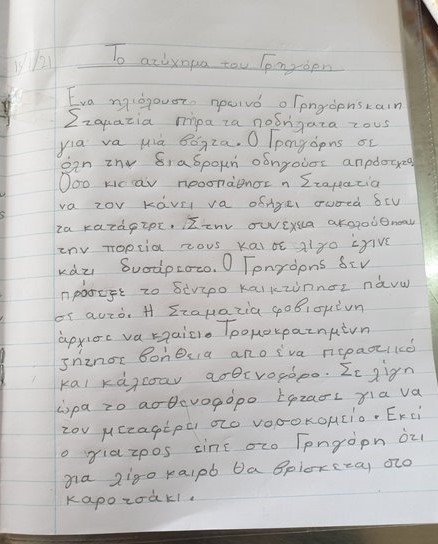 11/1/21
Το ατύχημα του Γρηγόρη
Ένα ηλιόλουστο πρωινό ο Γρηγόρης και η
Σταματία πήρα τα ποδήλατα τους
για να μιά βόλτα. Ο Γρηγόρης σε
όλη την διαδρομή οδηγούσε απρόσεχτα.
Όσο κιαν προσπάθησε η Σταματία
να τον κάνει να οδηγεί σωστά δεν
τα κατάφερε. Στην συνέχεια ακολούθησαν
την πορεία τους και σε λίγο έγινε
κάτι δυσάρεστο. Ο Γρηγόρης δεν
πρόσεξε το δέντρο και κτύπησε πάνω
σε αυτό. Η Σταματία φοβισμένη
άρχισε να κλαίει. Τρομοκρατημένη
ζήτησε βοήθεια από ένα περαστικό
και κάλεσαν ασθενοφόρο. Σε λίγη
ώρα το ασθενοφόρο έφτασε για να
τον μεταφέρει στο νοσοκομείο. Εκεί
ο γιατρος είπε στο Γρηγόρη ότι
για λίγο καιρό θα βρίσκεται στο
καροτσάκι.